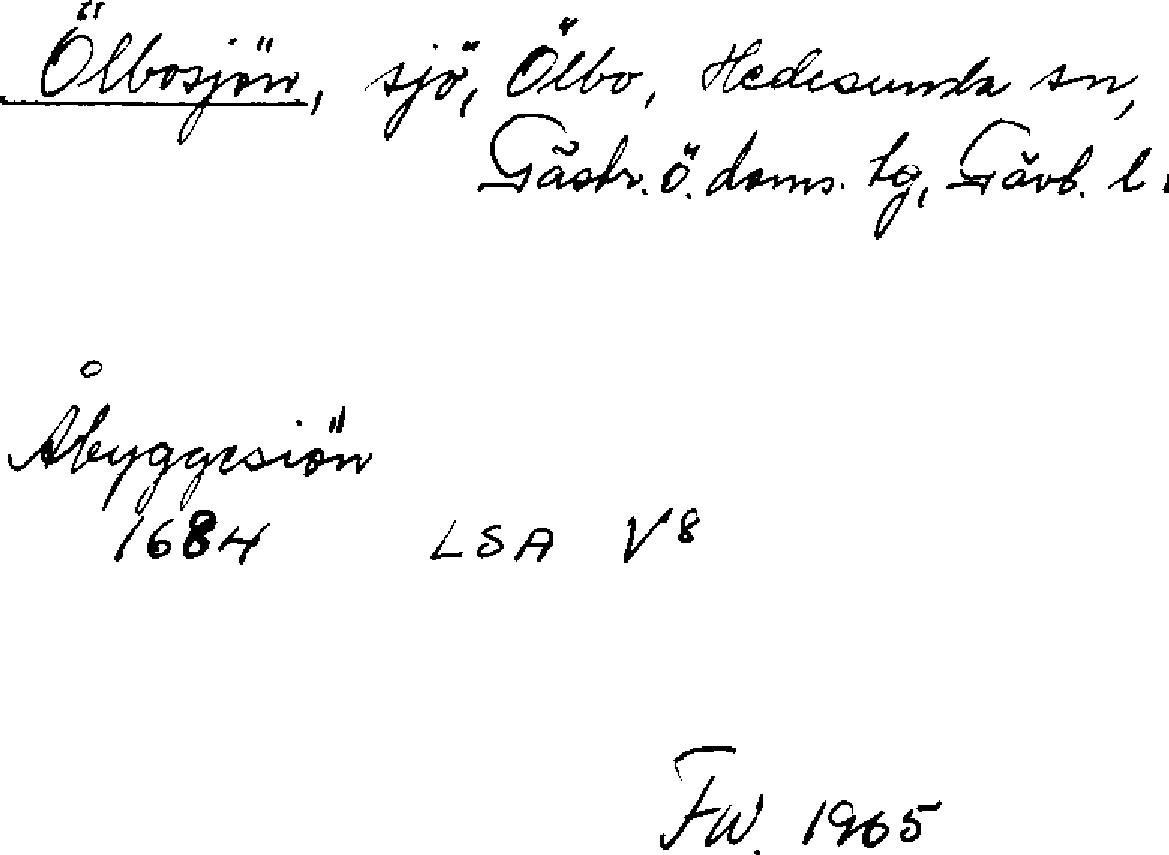 Ölbosjön, sjö, Ölbo, Hedesunda sn,
Gästr. ö. doms. tg, Gävb. l.
Åbyggesiön
1684 LSA V8
FW. 1965